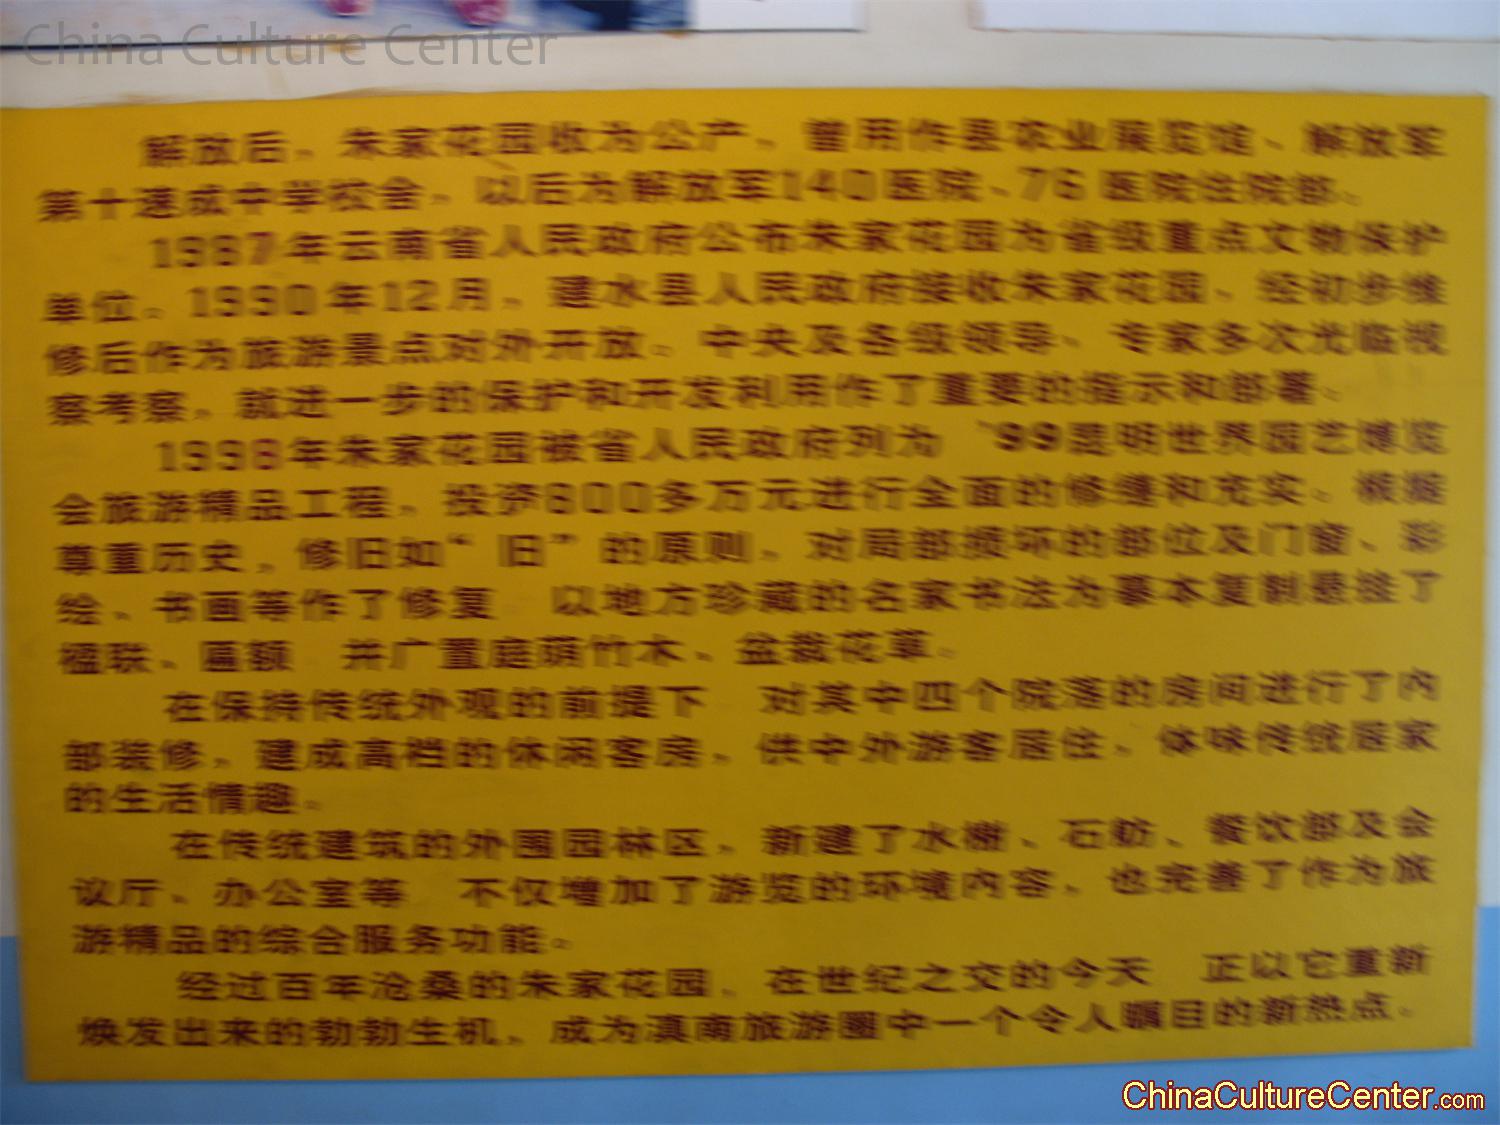 China Culture Center
解放后，朱家花园收为公产，曾用作县农业展览馆、解放军
第十速成中学校舍，以后为解放军140医院、76医院住院部。
1987年云南省人民政府公布朱家花园为省级重点文物保护
单位。1990年12月，建水县人民政府接收朱家花园，经初步维
修后作为旅游景点对外开放。中央及各级领导、专家多次光临视
察考察，就进一步的保护和开发利用作了重要的指示和部署。
1998年朱家花园被省人民政府列为'99昆明世界园艺博览
会旅游精品工程，投资800多万元进行全面的修缮和充实。根据
尊重历史，修旧如“旧”的原则，对局部损坏的部位及门窗、彩
绘、书画等作了修复 以地方珍藏的名家书法为摹本复制悬挂了
楹联、匾额 并广置庭荫竹木、盆栽花草。
在保持传统外观的前提下 对其中四个院落的房间进行了内
部装修，建成高档的休闲客房，供中外游客居住，体味传统居家
的生活情趣。
在传统建筑的外围园林区，新建了水榭、石舫、餐饮部及会
议厅、办公室等 不仅增加了游览的环境内容，也完善了作为旅
游精品的综合服务功能。
经过百年沧桑的朱家花园，在世纪之交的今天 正以它重新
焕发出来的勃勃生机，成为滇南旅游圈中一个令人瞩目的新热点。
ChinaCultureCenter.com